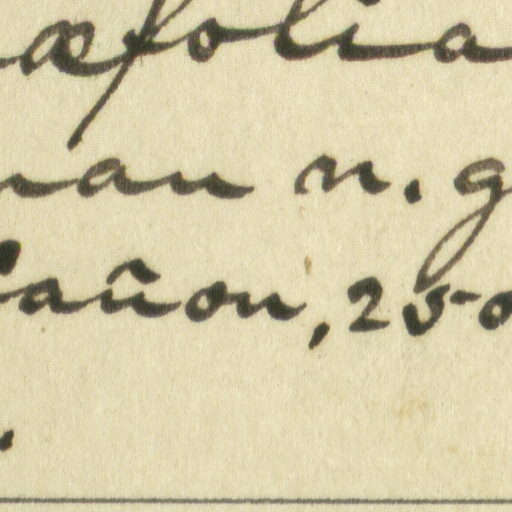 æfolia
man n. g
Cañon, 250
.